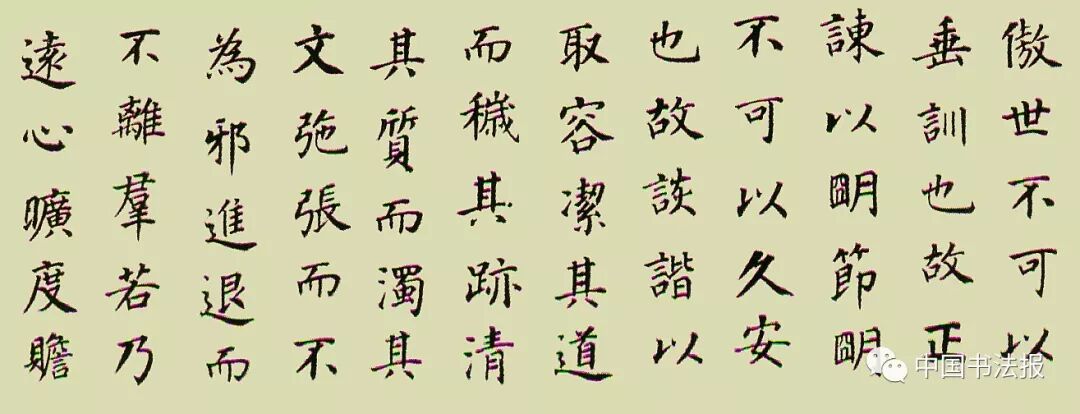 傲世不可以
垂訓也故正
諫以明節明
不可以久安
也故談諧以
取容潔其道
而穢其跡清
其質而濁其
文弛張而不
為邪進退而
不離羣若乃
遠心曠度贍
中国书法报